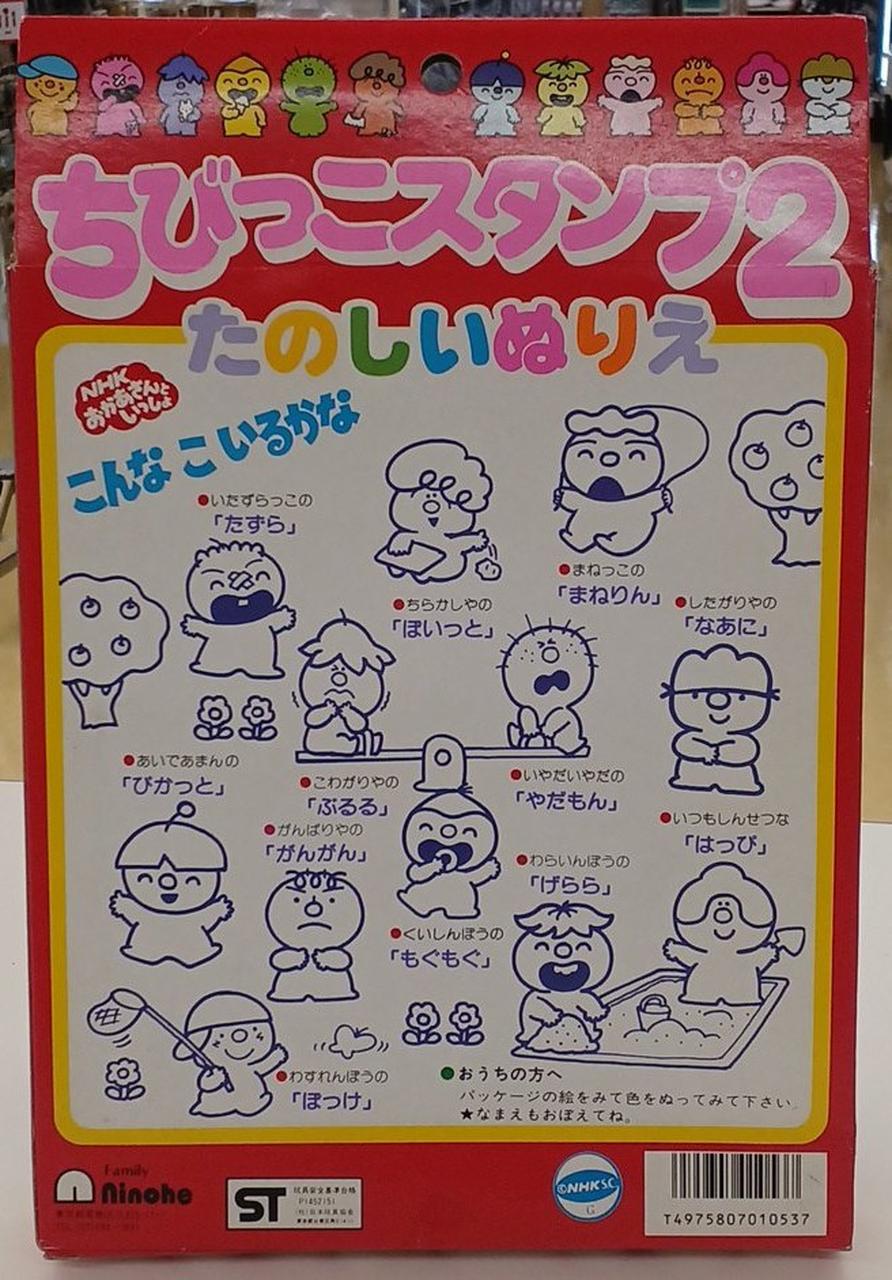 ちびっこスタンプ2
たのしいぬりえ
NHK
おかあさんと
いっしょ
こんなこいるかな
●いたずらっこの
「たずら」
●まねっこの
「まねりん」
●ちらかしやの
「ぽいっと」
●したがりやの
「なあに」
●あいであまんの
「ぴかっと」
●こわがりやの
「ぶるる」
●いやだいやだの
「やだもん」
●いつもしんせつな
「はっぴ」
●がんばりやの
「がんがん」
●わらいんぼうの
「げらら」
●くいしんぼうの
「もぐもぐ」
●わすれんぼうの
「ぽっけ」
●おうちの方へ
パッケージの絵をみて色をぬってみて下さい。
★なまえもおぼえてね。
Family
Ninohe
ST
玩具安全基準合格
(社)日本玩具協会
©NHKS.C.
G
T4975807010537